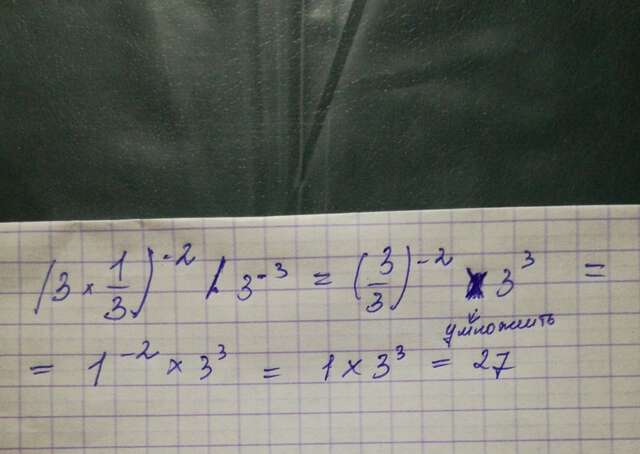 (3 × 1/3)^-2 / 3^-3 = (3/3)^-2 × 3^3 =
умножить
= 1^-2 × 3^3 = 1 × 3^3 = 27